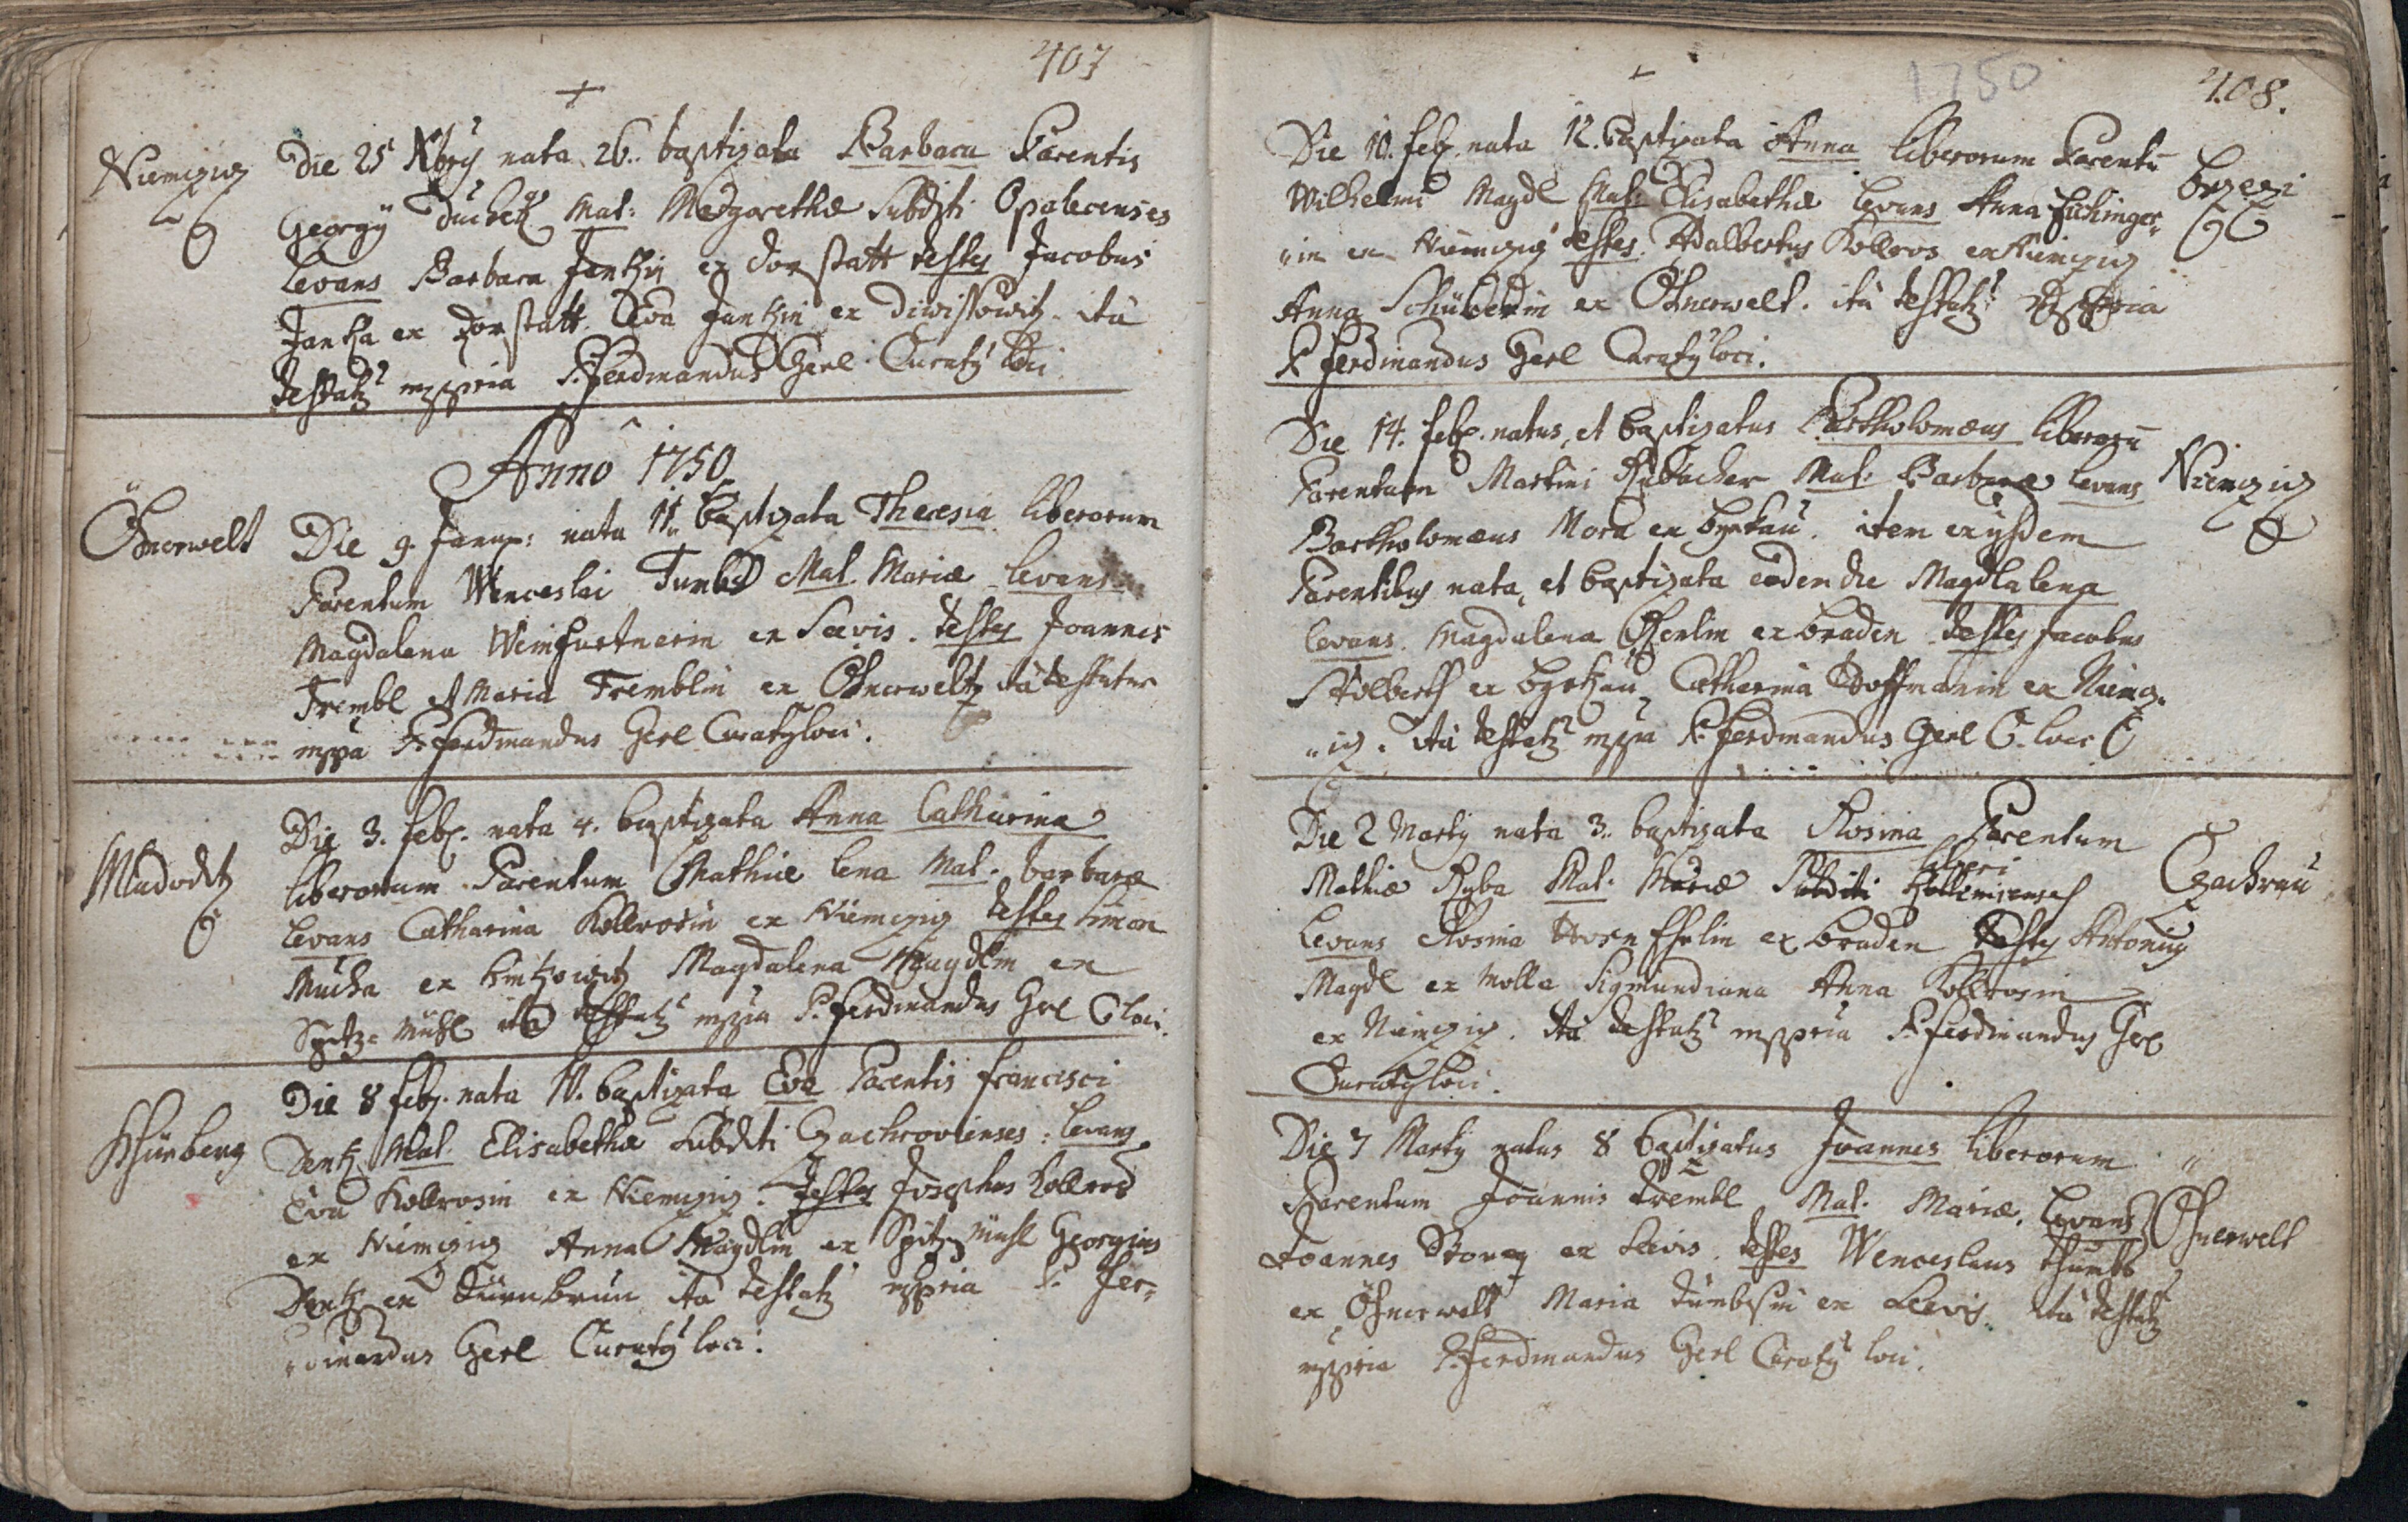 407
Niemczig Die 25 Xbris nata 26. baptizata Barbara Parentis
Georgÿ Duchek Mat: Margarethæ Subditi Opalecenses
Levans Barbara Jankin ex Dorstatt testes Jacobus
Janka ex Dorstatt Eva Jankin ex Diwissowitz. ita
testatz mppria P. Ferdinandus Gerl Curatꝰ loci
Anno 1750
Öhnerwelt Die 9 Januar: nata 11. baptizata Theresia liberorum
Parentum Wenceslai Tumbs Mat. Mariæ Levans
Magdalena Weinfurtnerin ex Seevis. testes Joannes
Trembl et Maria Tremblin ex Öhnerwelt, ita testatur
mppa P. Ferdinandus Gerl Curatꝰ loci.
Mladoditz Die 3. feb. nata 4. baptizata Anna Catharina
liberorum Parentum Mathiæ Lena Mat. barbaræ
Levans Catharina Kollrosin ex Niemczig testes Simon
Mucha ex Magdalena Magdlin ex
Spitz=Mühl ita testatz mppria P. Ferdinandus Gerl C loci.
Die 8 feb. nata 10. baptizata Eva Parentis Francisci
Dentz Mat. Elisabethæ Subditi Czachrovienses: Levans
Eva Kollrosin ex Niemczig. Testes Josephus Kollros
ex Niemczig Anna Magdlin ex Spitz Mühl Georgius
Dentz ex Dürnbrun ita testatz mppria P. Fer=
=dinandus Gerl Curatꝰ loci.
1750
408.
Die 10. feb. nata 12. baptizata Anna liberorum Parentū
Wilhelmi Magdl Mat: Elisabethæ Levans Anna Eichinger=
=in ex Niemczig testes Adalbertus Kollros ex Niemczig
Anna ex Öhnerwelt. ita testatz mppria
P. Ferdinandus Gerl Curatꝰ loci.
Die 14. feb. natus, et baptizatus Bartholomæus liberorū
Parentum Martini Mat: Barbaræ Levans Niemczig
Bartholomæus Mora ex item ex ijsdem
Parentibus nata, et baptizata eodem die Magdalena
Levans. Magdalena ex braden testes Jacobus
ex Catharina Hoffmanin ex Niemcz=
=ig. ita testatz mppria P. Ferdinandus Gerl C. loci
Die 2 Martÿ nata 3. baptizata Rosina Parentum
liberi
Mathiæ Ryba Mat. Mariæ Subditi Czachrau
Levans Rosina ex braden Testes Antonius
Magdl ex Molla Sigmundiana Anna Kollrosin
ex Niemczig. ita testatz mppria P. Ferdinandus Gerl
Curatꝰ loci.
Die 7 Martÿ natus 8 baptizatus Joannes liberorum
Parentum Joannis Trembl Mat. Mariæ. Levans Öhnerwelt
Joannes ex Seevis. testes Wenceslaus
ex Öhnerwelt Maria ex Seevis ita testatz
mppria P. Ferdinandus Gerl Curatꝰ loci.